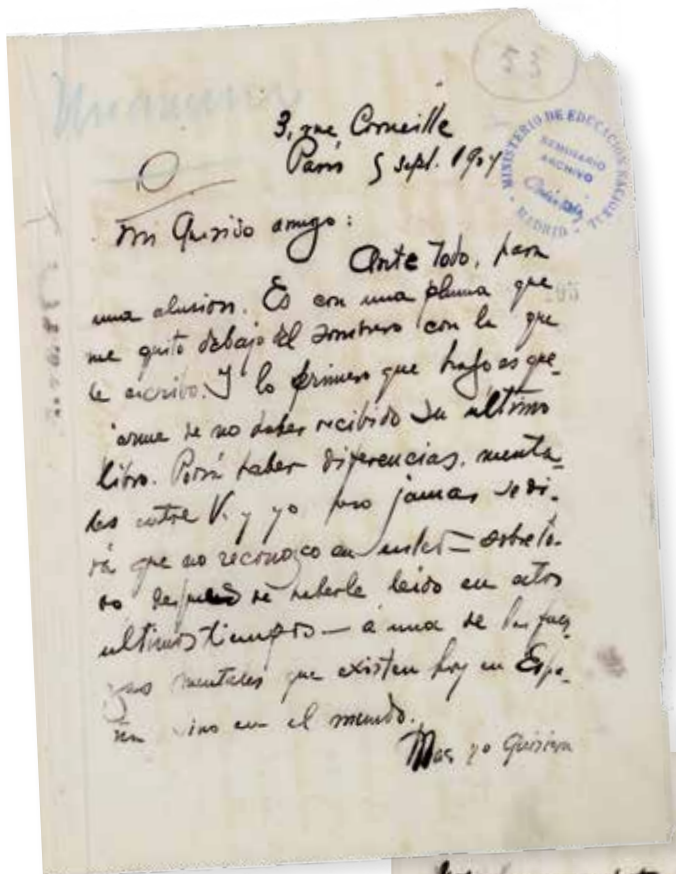 53
3, rue Corneille
Paris 5 sept. 1907
MINISTERIO DE EDUCACION NACIONAL
SEMINARIO
ARCHIVO
MADRID
Mi Querido amigo:
Ante Todo, para
una alusion. Es con una pluma que
me quito debajo del sombrero con la que
le escribo. Y lo primero que hago es que-
jarme de no haber recibido su ultimo
libro. Podrá haber diferencias menta-
les entre V. y yo pero jamas se di-
rá que no reconozco en usted — sobre to-
do despues de haberle leido en estos
ultimos tiempos — á una de las fuer-
zas mentales que existen hoy en Espa-
ña sino en el mundo.
Mas yo quisiera